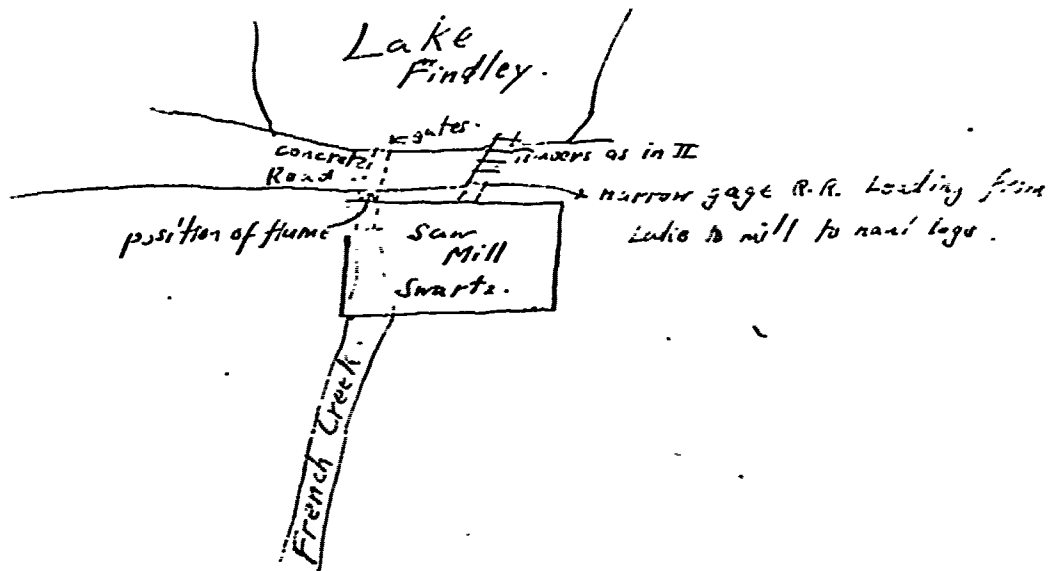 Lake
Findley.
gates.
concrete
Road
as in II
narrow gage R.R. Leading from
Lake to mill to haul logs.
position of flume
Saw
Mill
Swarts.
French Creek.